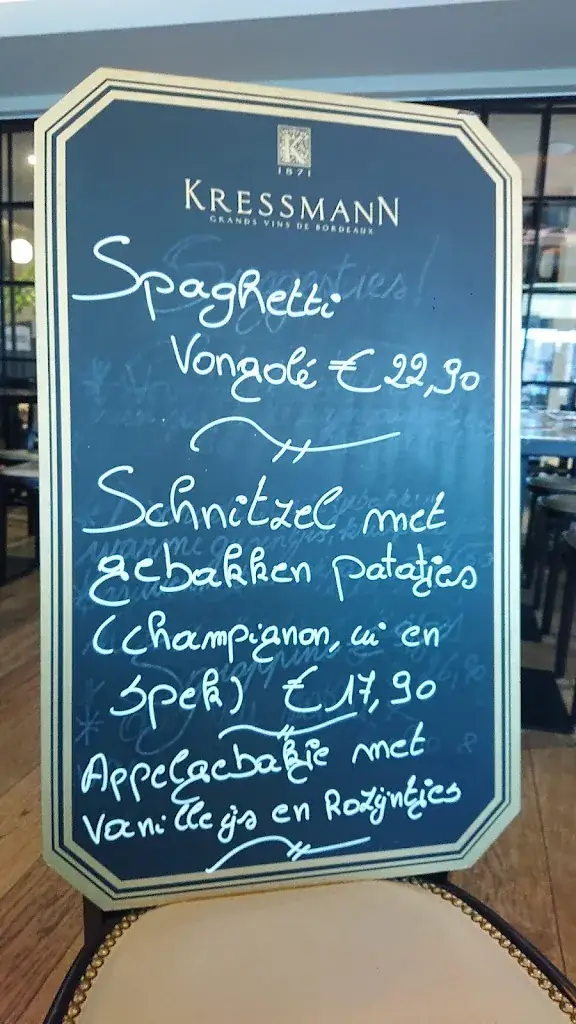 K
1871
KRESSMANN
GRANDS VINS DE BORDEAUX
Suggesties!
Spaghetti
Vongolé € 22,90
Schnitzel met
gebakken patatjes
(champignon, ui en
spek) € 17,90
Appelgebakje met
Vanille ijs en Rozijntjes